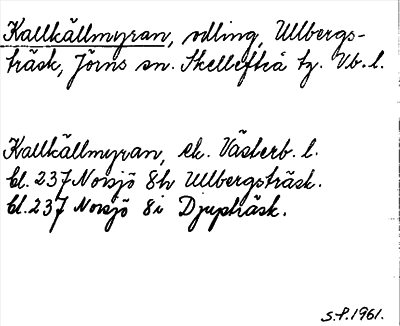 Kallkällmyran, odling, Ullbergs-
träsk, Jörns sn. Skellefteå tg. Vb. l.
Kallkällmyran, ek. Västerb. l.
Bl. 237 Norsjö 8h Ullbergsträsk.
Bl. 237 Norsjö 8i Djupträsk.
S.P. 1961.